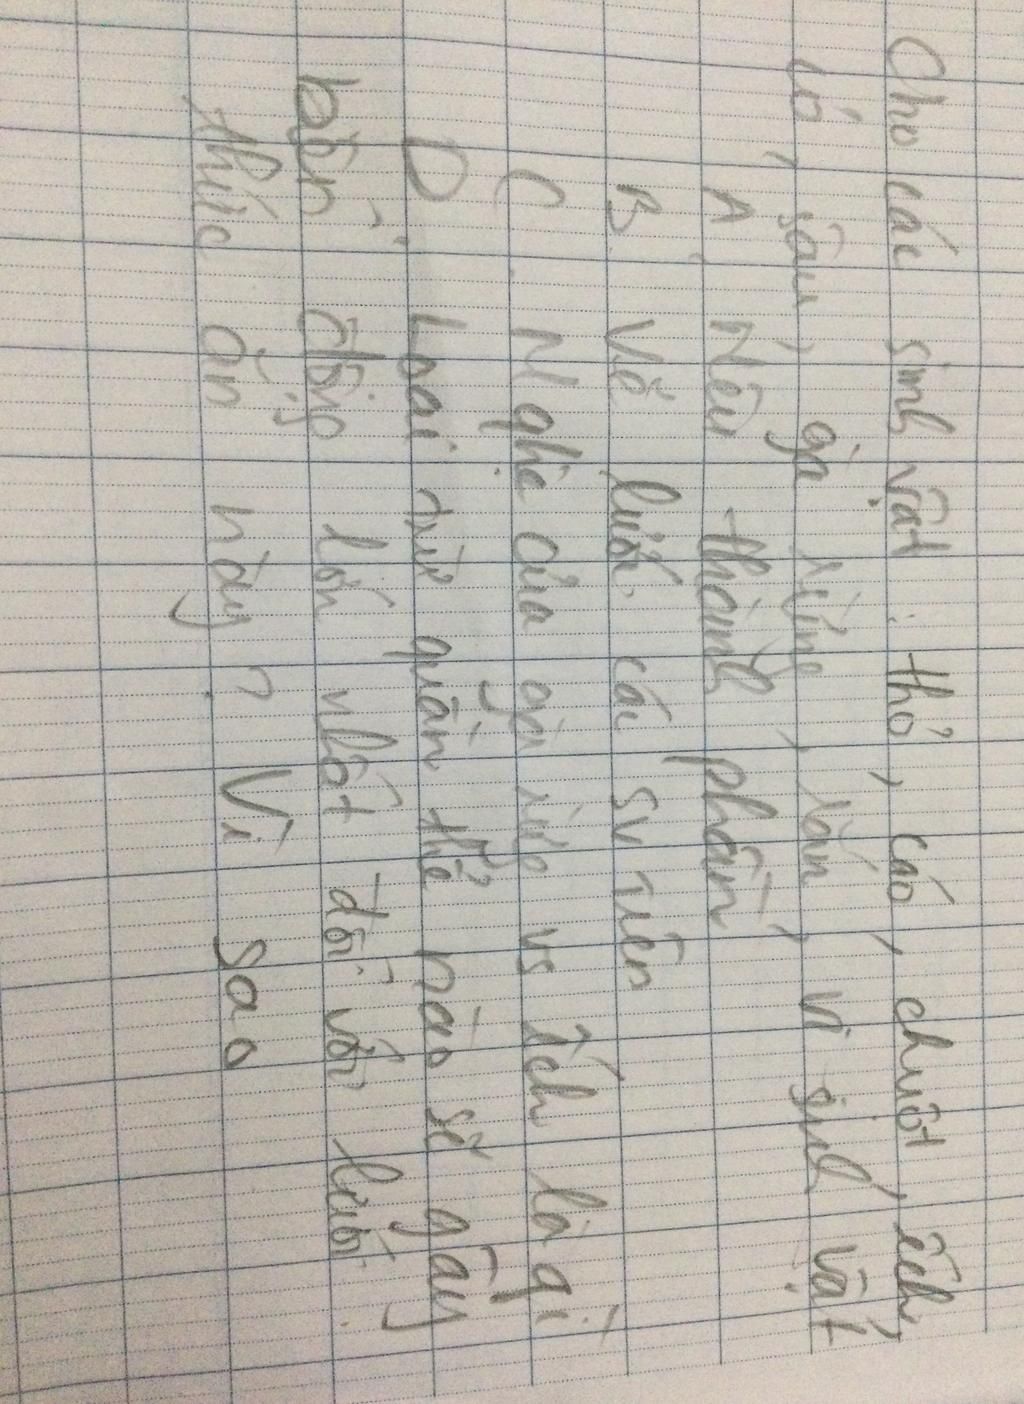 Cho các sinh vật : thỏ, cáo, chuột, ếch,
cỏ, sâu, gà rừng, rắn, vi sinh vật
A. Nêu thành phần
B. Vẽ lưới các sv trên
C. N ghệ của gà rừng vs ếch là gì
D. Loại trừ quần thể nào sẽ gây
biến động lớn nhất đối với lưới
thức ăn này? Vì sao